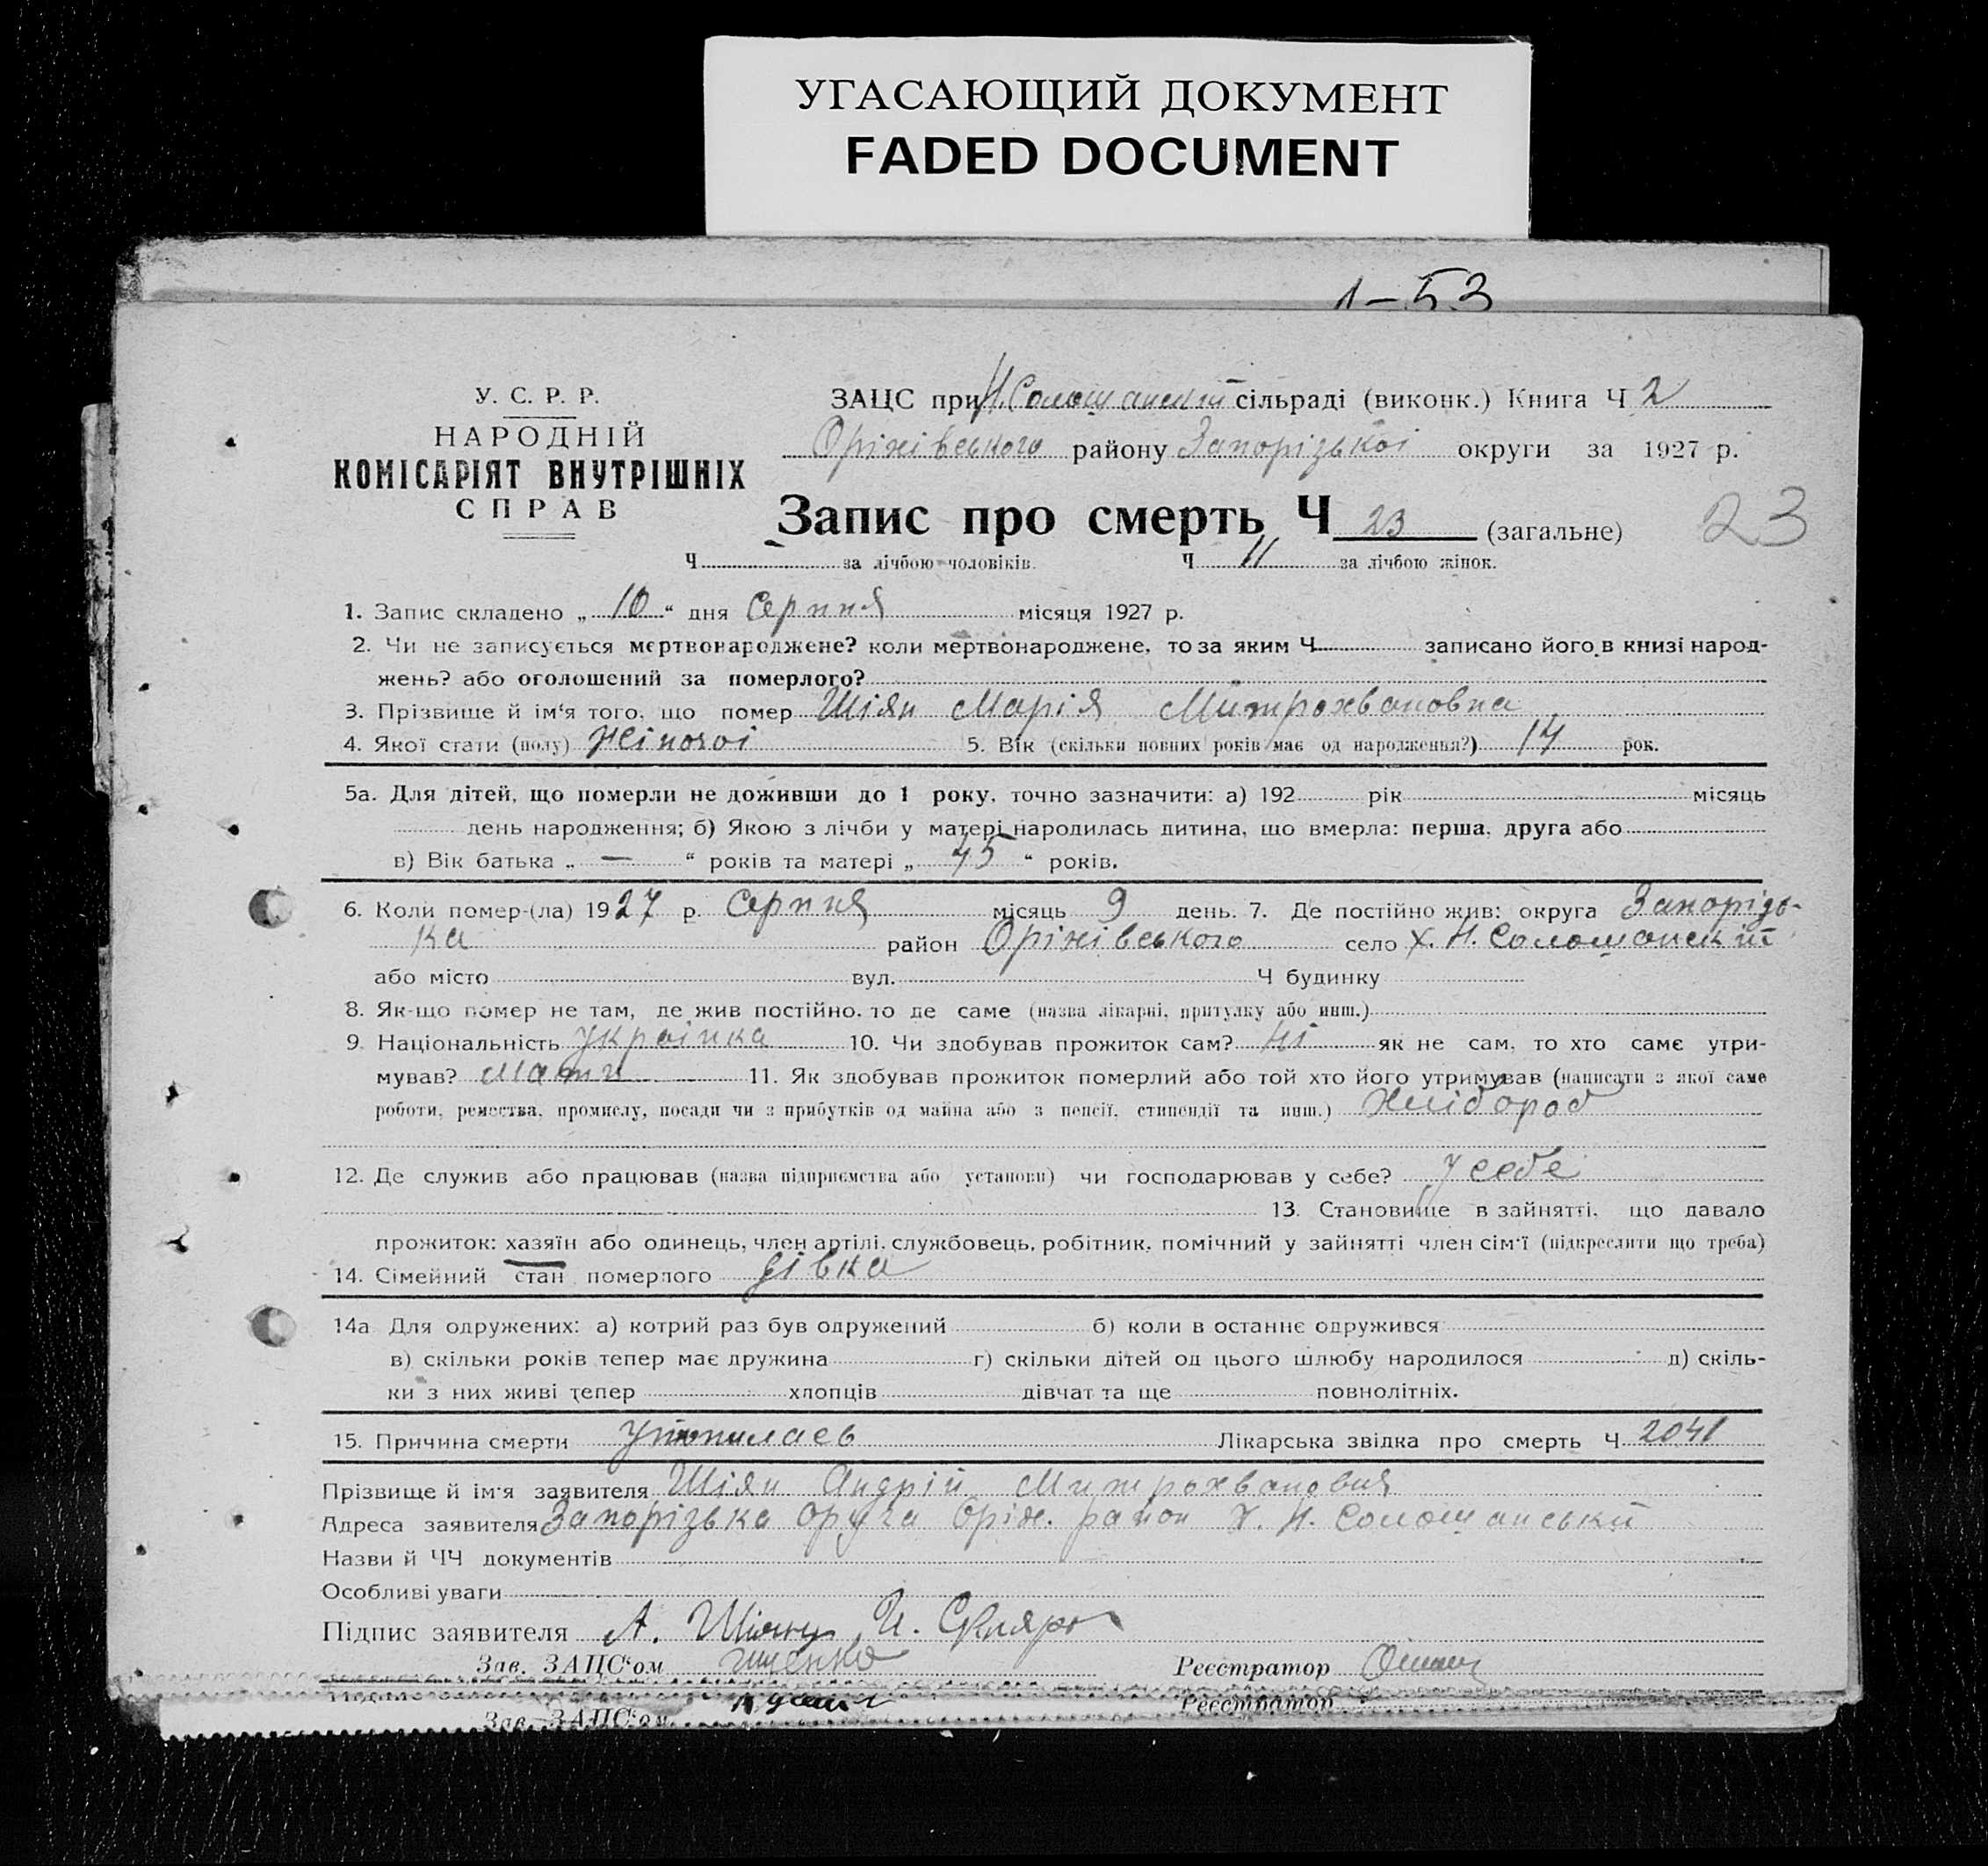 УГАСАЮЩИЙ ДОКУМЕНТ
FADED DOCUMENT
1–53
У. С. Р. Р.
НАРОДНІЙ
КОМІСАРІЯТ ВНУТРІШНІХ
СПРАВ
ЗАЦС при Н. Солошанській сільраді (виконк.) Книга Ч 2
Оріхівського району Запорізькоі округи за 1927 р.
Запис про смерть Ч 23 (загальне) 23
Ч за лічбою чоловіків. Ч 11 за лічбою жінок.
1. Запис складено „ 10 “ дня Серпня місяця 1927 р.
2. Чи не записується мертвонароджене? коли мертвонароджене, то за яким Ч записано його в книзі народ-
жень? або оголошений за померлого?
3. Прізвище й ім'я того, що помер Шіян Марія Митрохвановна
4. Якої стати (полу) Жіночоі 5. Вік (скільки повних років має од народження?) 14 рок.
5а. Для дітей, що померли не доживши до 1 року, точно зазначити: а) 192 рік місяць
день народження; б) Якою з лічби у матері народилась дитина, що вмерла: перша, друга або
в) Вік батька „ — “ років та матері „ 45 “ років.
6. Коли помер-(ла) 1927 р. Серпня місяць 9 день. 7. Де постійно жив: округа Запорізь-
ка район Оріхівського село х. Н. Солошанській
або місто вул. Ч будинку
8. Як-що помер не там, де жив постійно, то де саме (назва лікарні, притулку або инш.)
9. Національність Украінка 10. Чи здобував прожиток сам? Ні як не сам, то хто саме утри-
мував? Мати 11. Як здобував прожиток померлий або той хто його утримував (написати з якої саме
роботи, ремества, промислу, посади чи з прибутків од майна або з пенсії, стипендії та инш.) Хлібороб
12. Де служив або працював (назва підприємства або установи) чи господарював у себе? У себе
13. Становище в зайнятті, що давало
прожиток: хазяїн або одинець, член артілі, службовець, робітник, помічний у зайнятті член сім'ї (підкреслити що треба)
14. Сімейний стан померлого дівка
14а Для одружених: а) котрий раз був одружений б) коли в останнє одружився
в) скільки років тепер має дружина г) скільки дітей од цього шлюбу народилося д) скіль-
ки з них живі тепер хлопців дівчат та ще повнолітніх.
15. Причина смерти Утопилась Лікарська звідка про смерть Ч 2041
Прізвище й ім'я заявителя Шіян Андрій Митрохванович
Адреса заявителя Запорізька округа Оріх. район Х. Н. Солошанській
Назви й ЧЧ документів
Особливі уваги
Підпис заявителя А. Шіян И. Скляр
Зав. ЗАЦС'ом Реєстратор
Реєстратор
Зав. ЗАЦС'ом